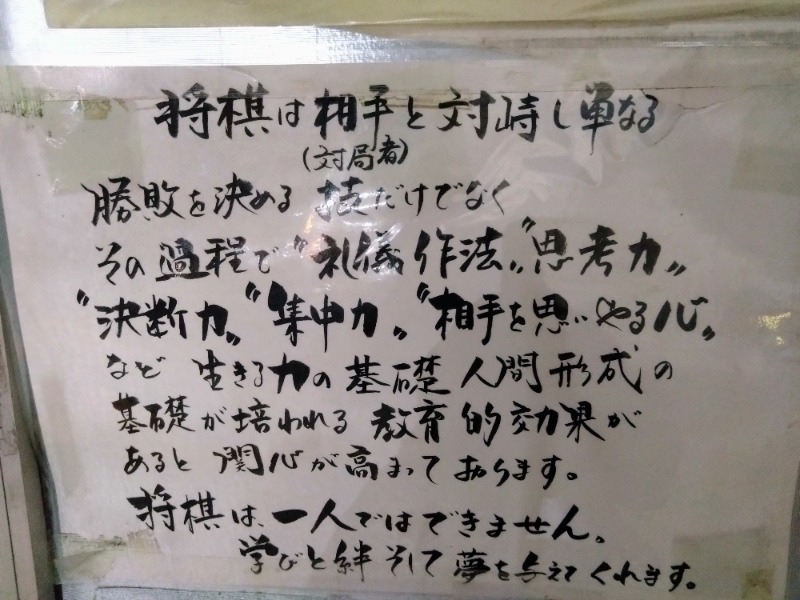 将棋は相手と対峙し単なる
(対局者)
勝敗を決める技だけでなく
その過程で〝礼儀作法〟〝思考力〟
〝決断力〟〝集中力〟〝相手を思いやる心〟
など 生きる力の基礎 人間形成の
基礎が培われる 教育的効果が
あると 関心が高まっております。
将棋は、一人ではできません。
学びと絆そして夢を与えてくれます。